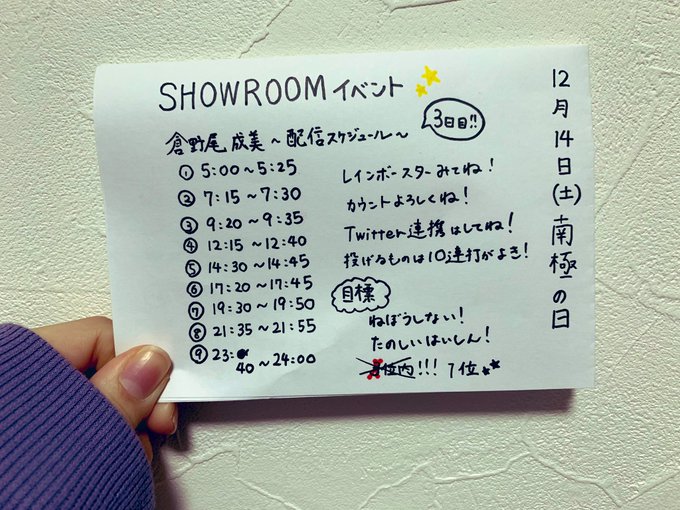 SHOWROOM イベント
3日目!!
倉野尾 成美 ~ 配信スケジュール ~
① 5:00 ~ 5:25
② 7:15 ~ 7:30
③ 9:20 ~ 9:35
④ 12:15 ~ 12:40
⑤ 14:30 ~ 14:45
⑥ 17:20 ~ 17:45
⑦ 19:30 ~ 19:50
⑧ 21:35 ~ 21:55
⑨ 23:40 ~ 24:00
レインボースターみてね!
カウントよろしくね!
Twitter連携はしてね!
投げるものは10連打がよき!
目標
ねぼうしない!
たのしいはいしん!
位内!!! 1位
12月14日(土)南極の日